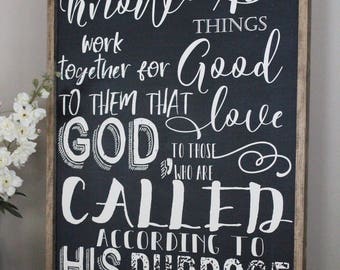 know
THINGS
work
together for Good
TO THEM THAT love
GOD, TO THOSE
WHO ARE
CALLED
ACCORDING TO
HIS PURPOSE